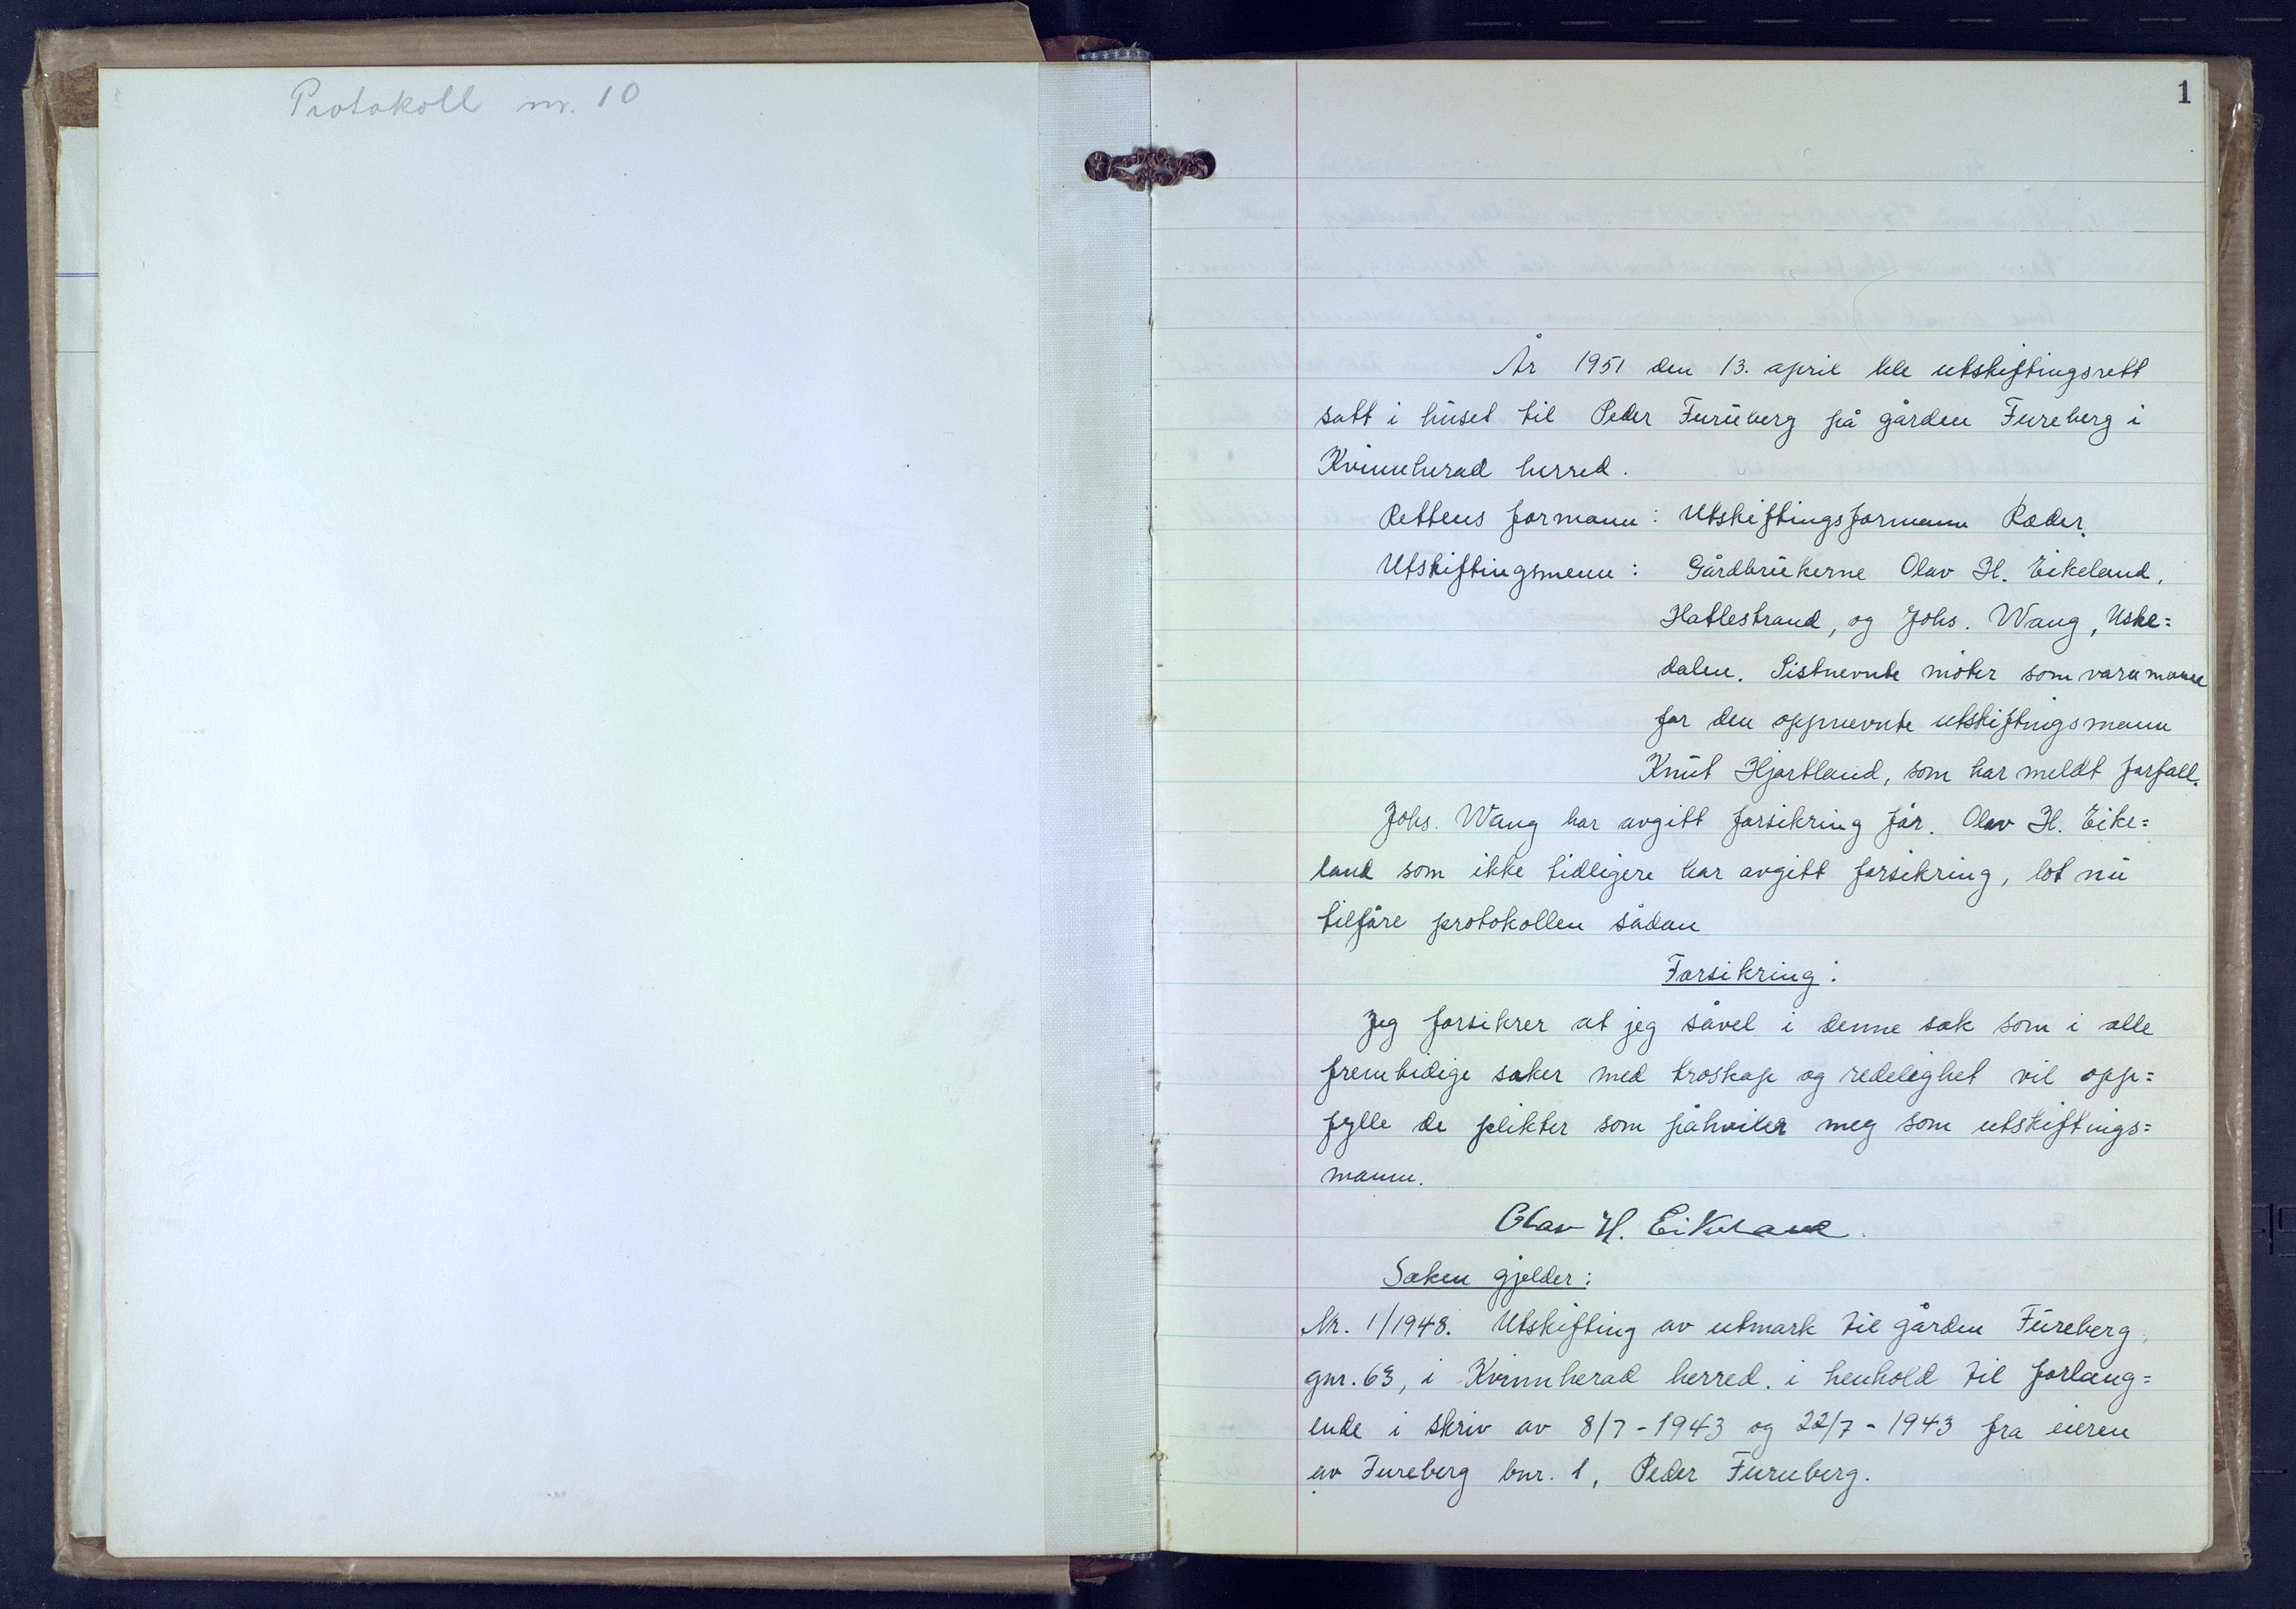 Protokoll nr. 10
1
År 1951 den 13. april ble utskiftingsrett
satt i huset til Peder Fureberg på gården Fureberg i
Kvinnherad herred.
Rettens formann: Utskiftingsformann Ræder.
Utskiftingsmenn: Gårdbrukerne Olav H. Eikeland,
Hatlestrand, og Johs. Wang, Uske=
dalen. Sistnevnte møter som varamann
for den oppnevnte utskiftingsmann
Knut Hjartland, som har meldt forfall.
Johs. Wang har avgitt forsikring før. Olav H. Eike=
land som ikke tidligere har avgitt forsikring, lot nu
tilføre protokollen sådan
Forsikring:
Jeg forsikrer at jeg såvel i denne sak som i alle
fremtidige saker med troskap og redelighet vil opp=
fylle de plikter som påhviler meg som utskiftings=
mann.
Olav H. Eikeland.
Saken gjelder:
Nr. 1/1948. Utskifting av utmark til gården Fureberg,
gnr. 63, i Kvinnherad herred. i henhold til forlang=
ende i skriv av 8/7-1943 og 22/7-1943 fra eieren
av Fureberg bnr. 1, Peder Fureberg.